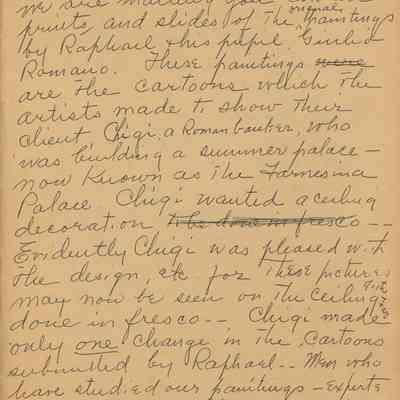 we are mailing you
prints, and slides of the original paintings
by Raphael, & his pupil, Giulio
Romano. These paintings were
are the cartoons which the
artists made to show their
client Chigi, a Roman banker, who
was building a summer palace —
now known as the Farnesina
Palace. Chigi wanted a ceiling
decoration to be done in fresco --
Evidently Chigi was pleased with
the design, etc for these pictures
may now be seen on the ceiling
done in fresco -- Chigi made
only one change in the cartoons
submitted by Raphael -- Men who
have studied our paintings — experts